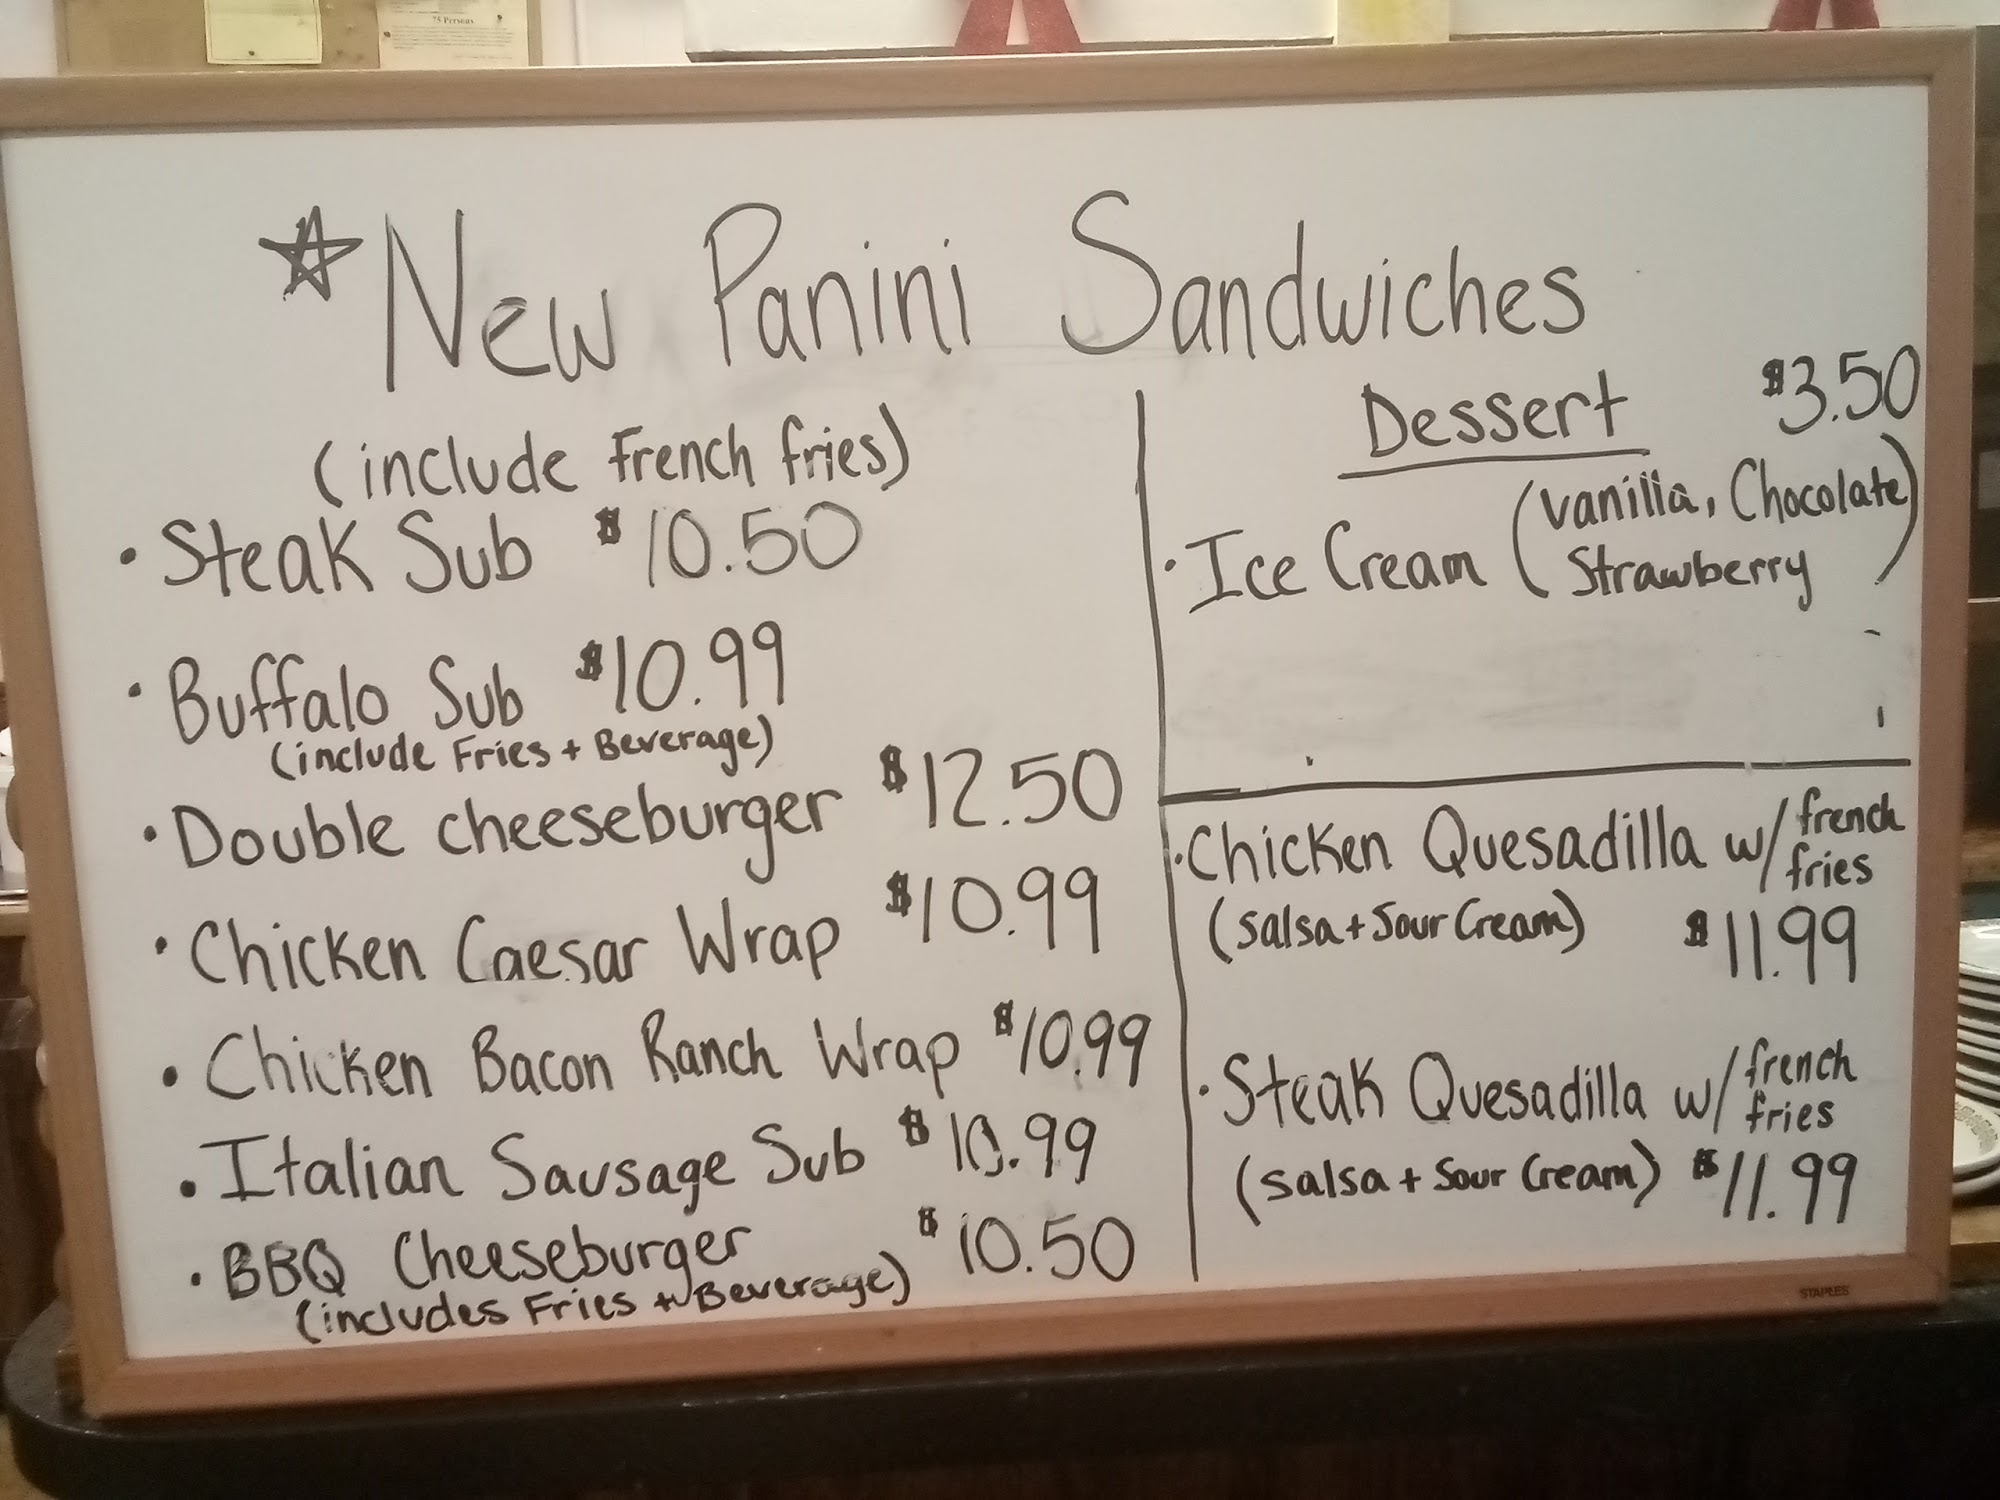 75 Persons
New Panini Sandwiches
(include French fries)
• Steak Sub $10.50
• Buffalo Sub $10.99
(include Fries + Beverage)
• Double cheeseburger $12.50
• Chicken Caesar Wrap $10.99
• Chicken Bacon Ranch Wrap $10.99
• Italian Sausage Sub $10.99
• BBQ Cheeseburger $10.50
(includes Fries + Beverage)
Dessert $3.50
• Ice Cream (vanilla, Chocolate
Strawberry)
• Chicken Quesadilla w/ french
fries
(salsa + Sour Cream) $11.99
• Steak Quesadilla w/ french
fries
(salsa + Sour Cream) $11.99
STAPLES